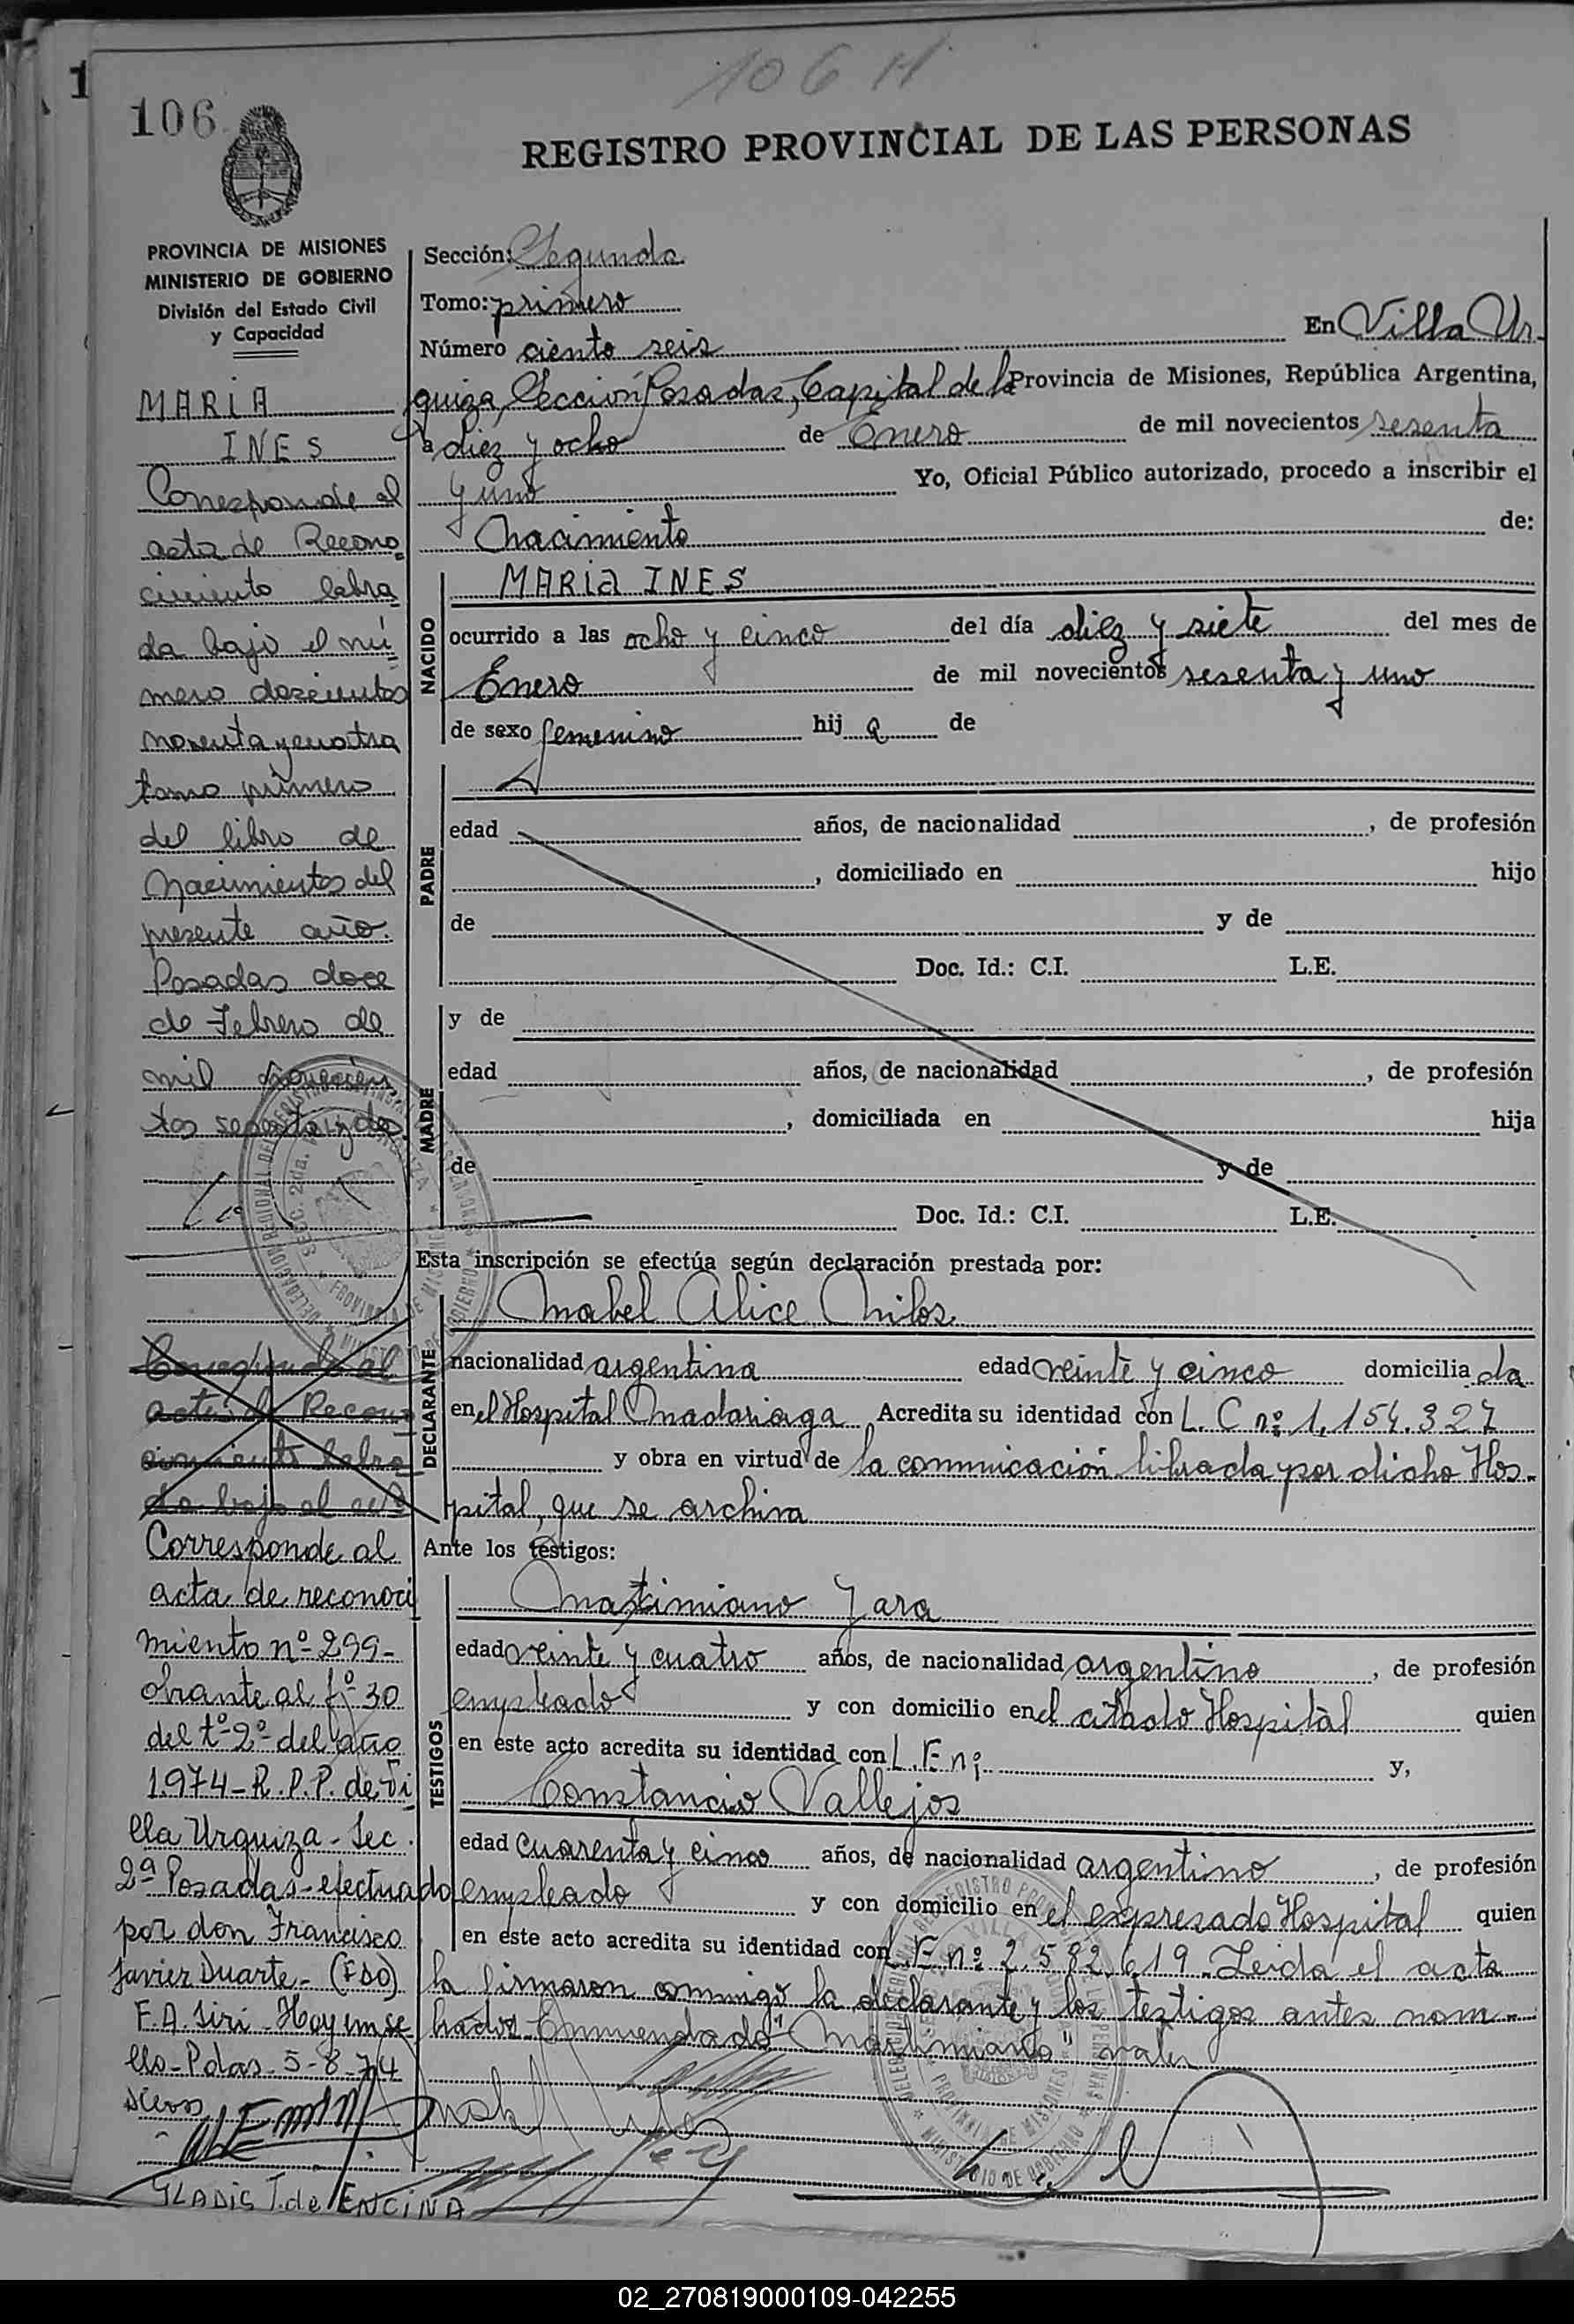 106 H
106
REGISTRO PROVINCIAL DE LAS PERSONAS
PROVINCIA DE MISIONES
MINISTERIO DE GOBIERNO
División del Estado Civil
y Capacidad
MARIA
INES
Corresponde al
acta de Recono
cimiento labra
da bajo el nú
mero doscientos
noventa y cuatro
tomo primero
del libro de
Nacimientos del
presente año.
Posadas doce
de Febrero de
mil novecien
tos sesenta y dos.
Corresponde al
acta de Recono
cimiento labra
da bajo el nº
Corresponde al
acta de reconoci
miento nº 299-
obrante al fº 30
del tº 2º del año
1.974- R. P. P. de Vi
lla Urquiza - Sec.
2ª Posadas - efectuado
por don Francisco
Javier Duarte - (FDO)
F. A. Siri - Hoy em se
llo - Pdas - 5-8-74
GLADIS T. de ENCINA
Sección: Segunda
Tomo: primero
Número ciento seis En Villa Ur-
quiza, Sección Posadas, Capital de la Provincia de Misiones, República Argentina,
a diez y ocho de Enero de mil novecientos sesenta
y uno Yo, Oficial Público autorizado, procedo a inscribir el
Nacimiento de:
NACIDO
MARIA INES
ocurrido a las ocho y cinco del día diez y siete del mes de
Enero de mil novecientos sesenta y uno
de sexo femenino hij a de
PADRE
edad años, de nacionalidad , de profesión
, domiciliado en hijo
de y de
Doc. Id.: C.I. L.E.
MADRE
y de
edad años, de nacionalidad , de profesión
, domiciliada en hija
de y de
Doc. Id.: C.I. L.E.
Esta inscripción se efectúa según declaración prestada por:
DECLARANTE
Mabel Alice Milos
nacionalidad argentina edad veinte y cinco domicilia da
en el Hospital Madariaga Acredita su identidad con L. C nº 1.154.327
y obra en virtud de la comunicación librada por dicho Hos-
pital, que se archiva
Ante los testigos:
TESTIGOS
Maximiano Jara
edad veinte y cuatro años, de nacionalidad argentino , de profesión
empleado y con domicilio en el citado Hospital quien
en este acto acredita su identidad con L. E nº y,
Constancio Vallejos
edad cuarenta y cinco años, de nacionalidad argentino , de profesión
empleado y con domicilio en el expresado Hospital quien
en este acto acredita su identidad con L. E nº 2.582.619. Leida el acta
la firmaron conmigo la declarante y los testigos antes nom-
brados. Enmendado "Maximiano" vale
02_270819000109-042255